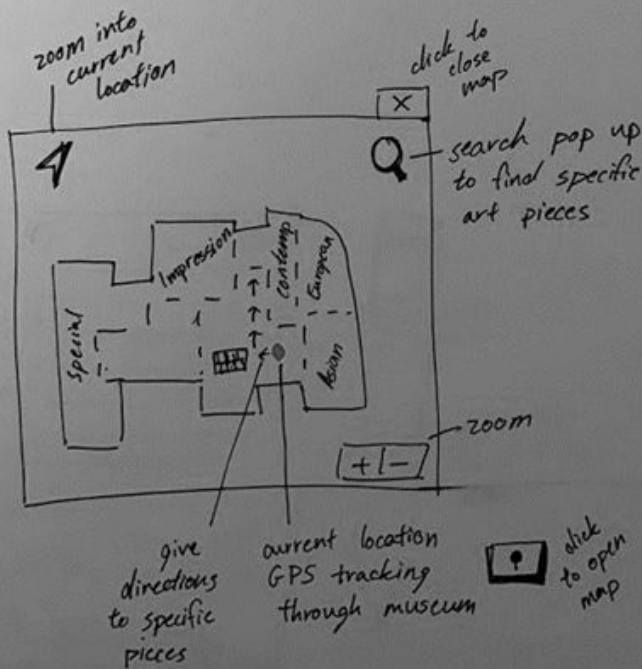 zoom into
current
location
click to
close
map
X
search pop up
to find specific
art pieces
Special
Impression
Contemp
European
Asian
zoom
+|-
give
directions
to specific
pieces
current location
GPS tracking
through museum
click
to open
map